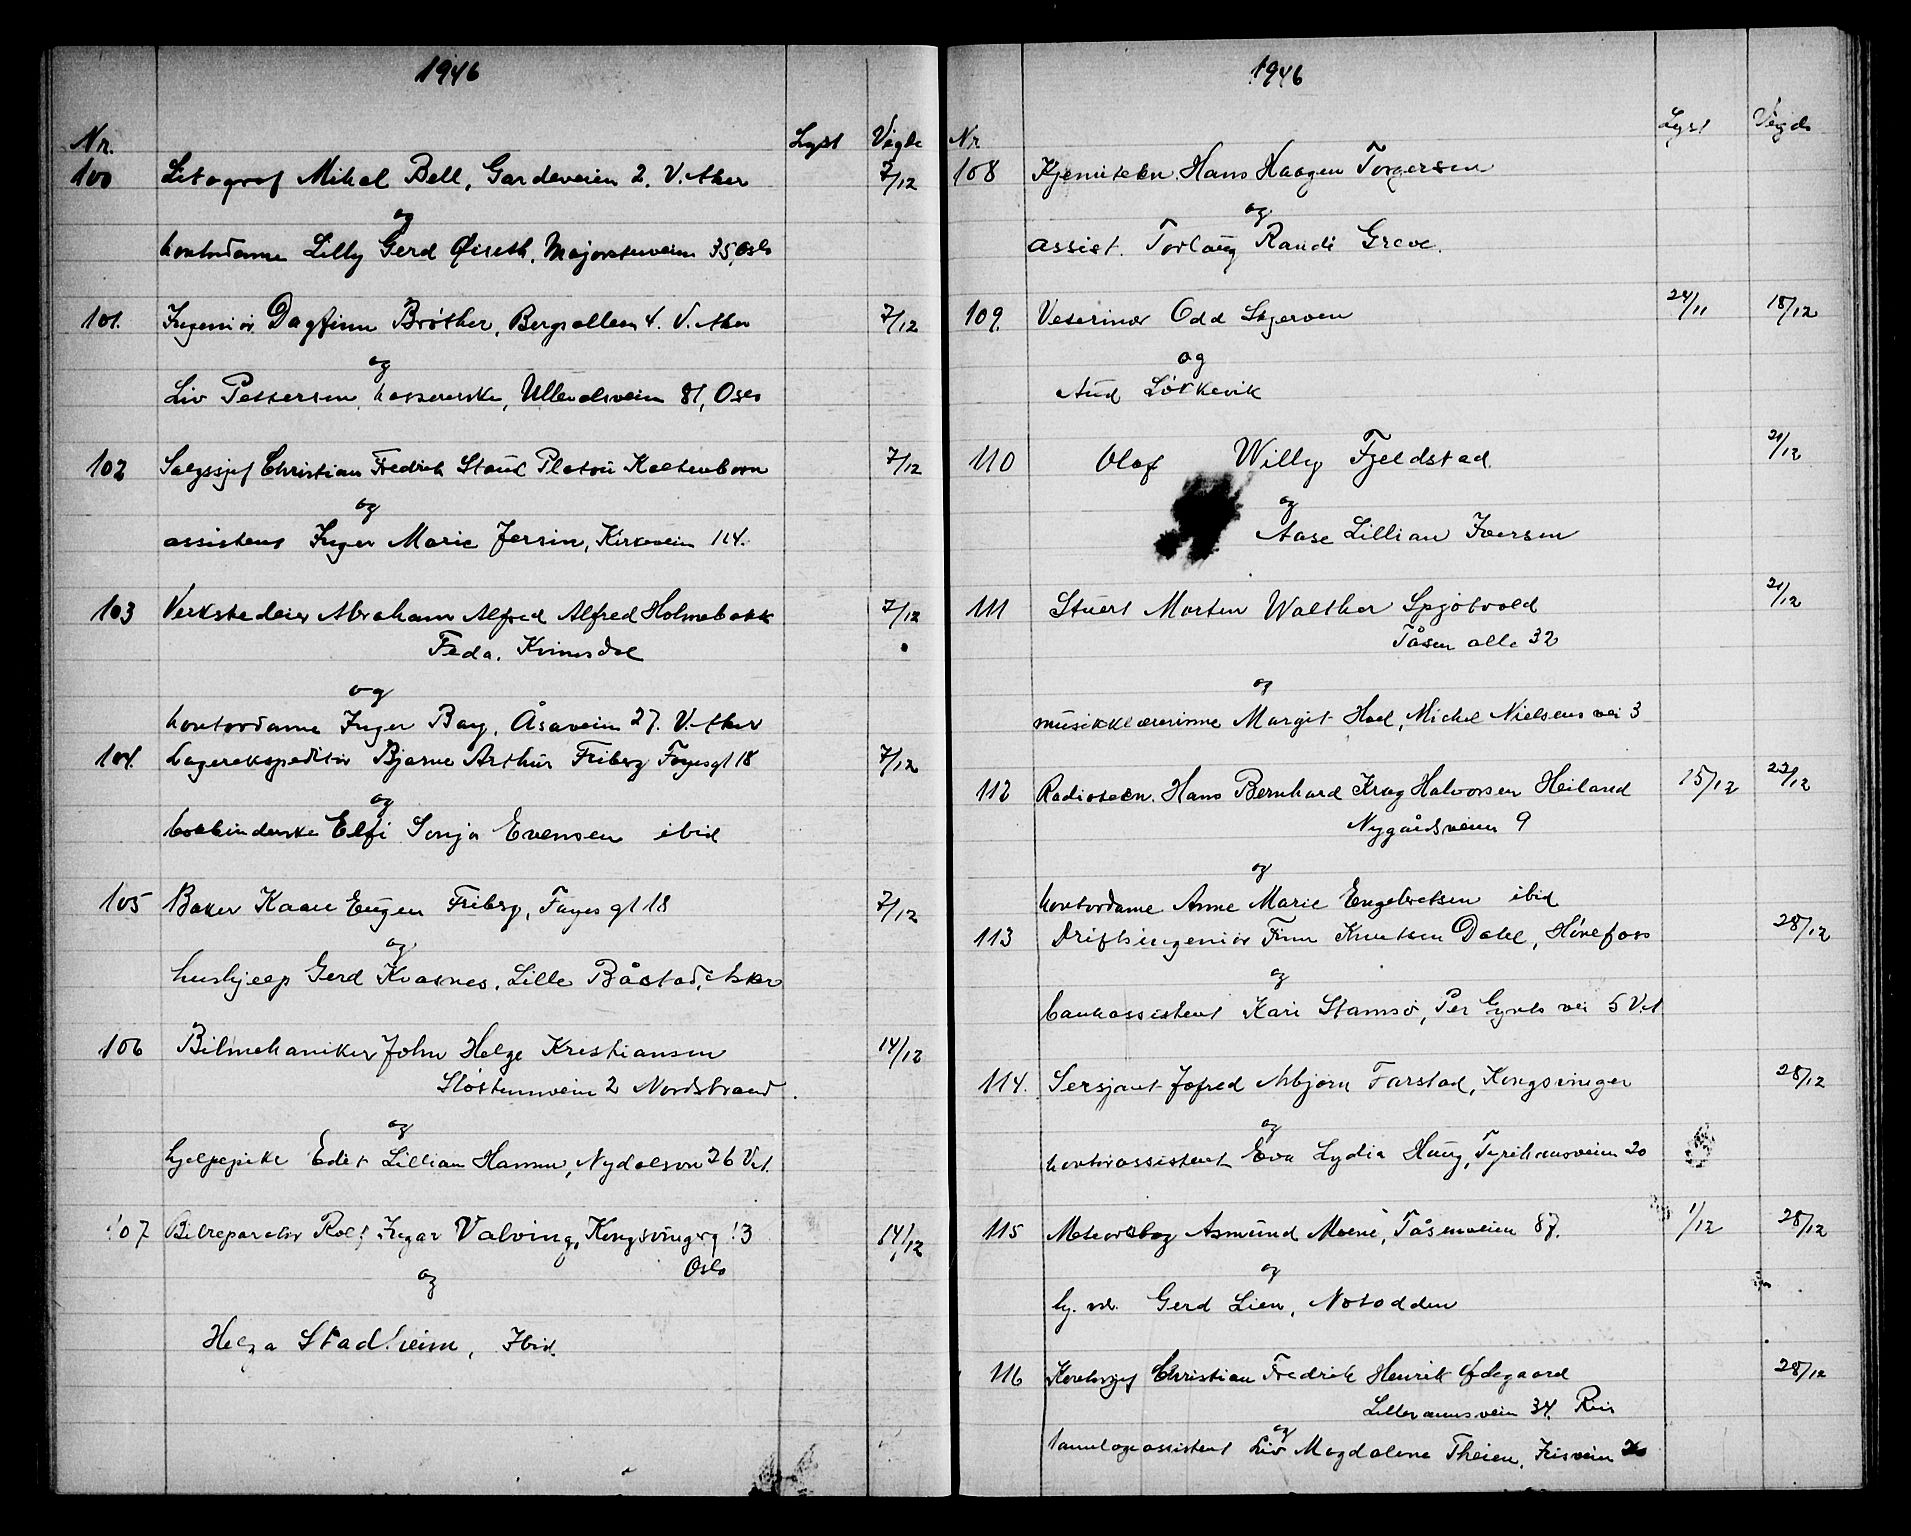 1946
Nr. Lyst Vigde
100 Litograf Mikal Bell, Gardeveien 2. V. Aker 7/12
og
kontordame Lilly Gerd Øiseth, Majorstuveien 35, Oslo
101. Ingeniør Dagfinn Brøther, Bergsalleen 4. V. Aker 7/12
og
Liv Pettersen, kassererske, Ullevolsveien 81, Oslo
102 Salgssjef Christian Fredrik Staul Platou Kaltenborn 7/12
og
assistent Inger Marie Jersin, Kirkeveien 114.
103 Verkstedeier Abraham Alfred Alfred Holmebakk 7/12
Feda. Kvinesdal
og
kontordame Inger Bay, Åsaveien 27. V. Aker
104. Lagerekspeditør Bjarne Arthur Friberg Fayesgt 18 7/12
og
bokbinderske Elfi Sonja Evensen ibid
105 Baker Kaare Eugen Friberg, Fayes gt 18 7/12
og
hushjelp Gerd Kvasnes, Lille Båstad, Aker
106 Bilmekaniker John Helge Kristiansen 14/12
2 Nordstrand
og
hjelpepike Edit Lillian Hamm, Nydalsvn 26 V.A.
107 Bilreparatør Rolf Ingar Valving, Kongsvingerg 13 14/12
Oslo
og
Helga Stadheim, Ibid.
1946
Nr Lyst Vigde
108 Kjemitekn. Hans Haagen Torgersen
og
assist. Torlaug Randi Greve.
109. Veterinær Odd Skjerven 24/11 18/12
og
Aud Løkkevik
110 Olaf Willy Fjeldstad 21/12
og
Aase Lillian Iversen
111 Stuert Morten Walther Spjøtvold 21/12
Tåsen alle 32
og
musikklærerinne Margit Hoel, Michel Nielsens vei 3
112 Radiotekn. Hans Bernhard Krag Halvorsen Heiland 15/12 22/12
Nygårdsveien 9
og
kontordame Anne Marie Engebretsen ibid
113 Driftsingeniør Finn Knutsen Dahl, Hønefoss 28/12
og
bankassistent Kari Stamsø, Per Gynts vei 5 V.A
114. Sersjant Jofred Asbjørn Farstad, Kongsvinger 28/12
og
kontorassistent Eva Lydia Haug, Tyrihansveien 20
115 Meteorolog Asmund Moene, Tåsenveien 87. 1/12 28/12
og
Gerd Lien, Notodden
116 Kontorsjef Christian Fredrik Henrik Ødegaard 28/12
34.
og
tannlegeassistent Liv Magdalene Theien, Frisveien